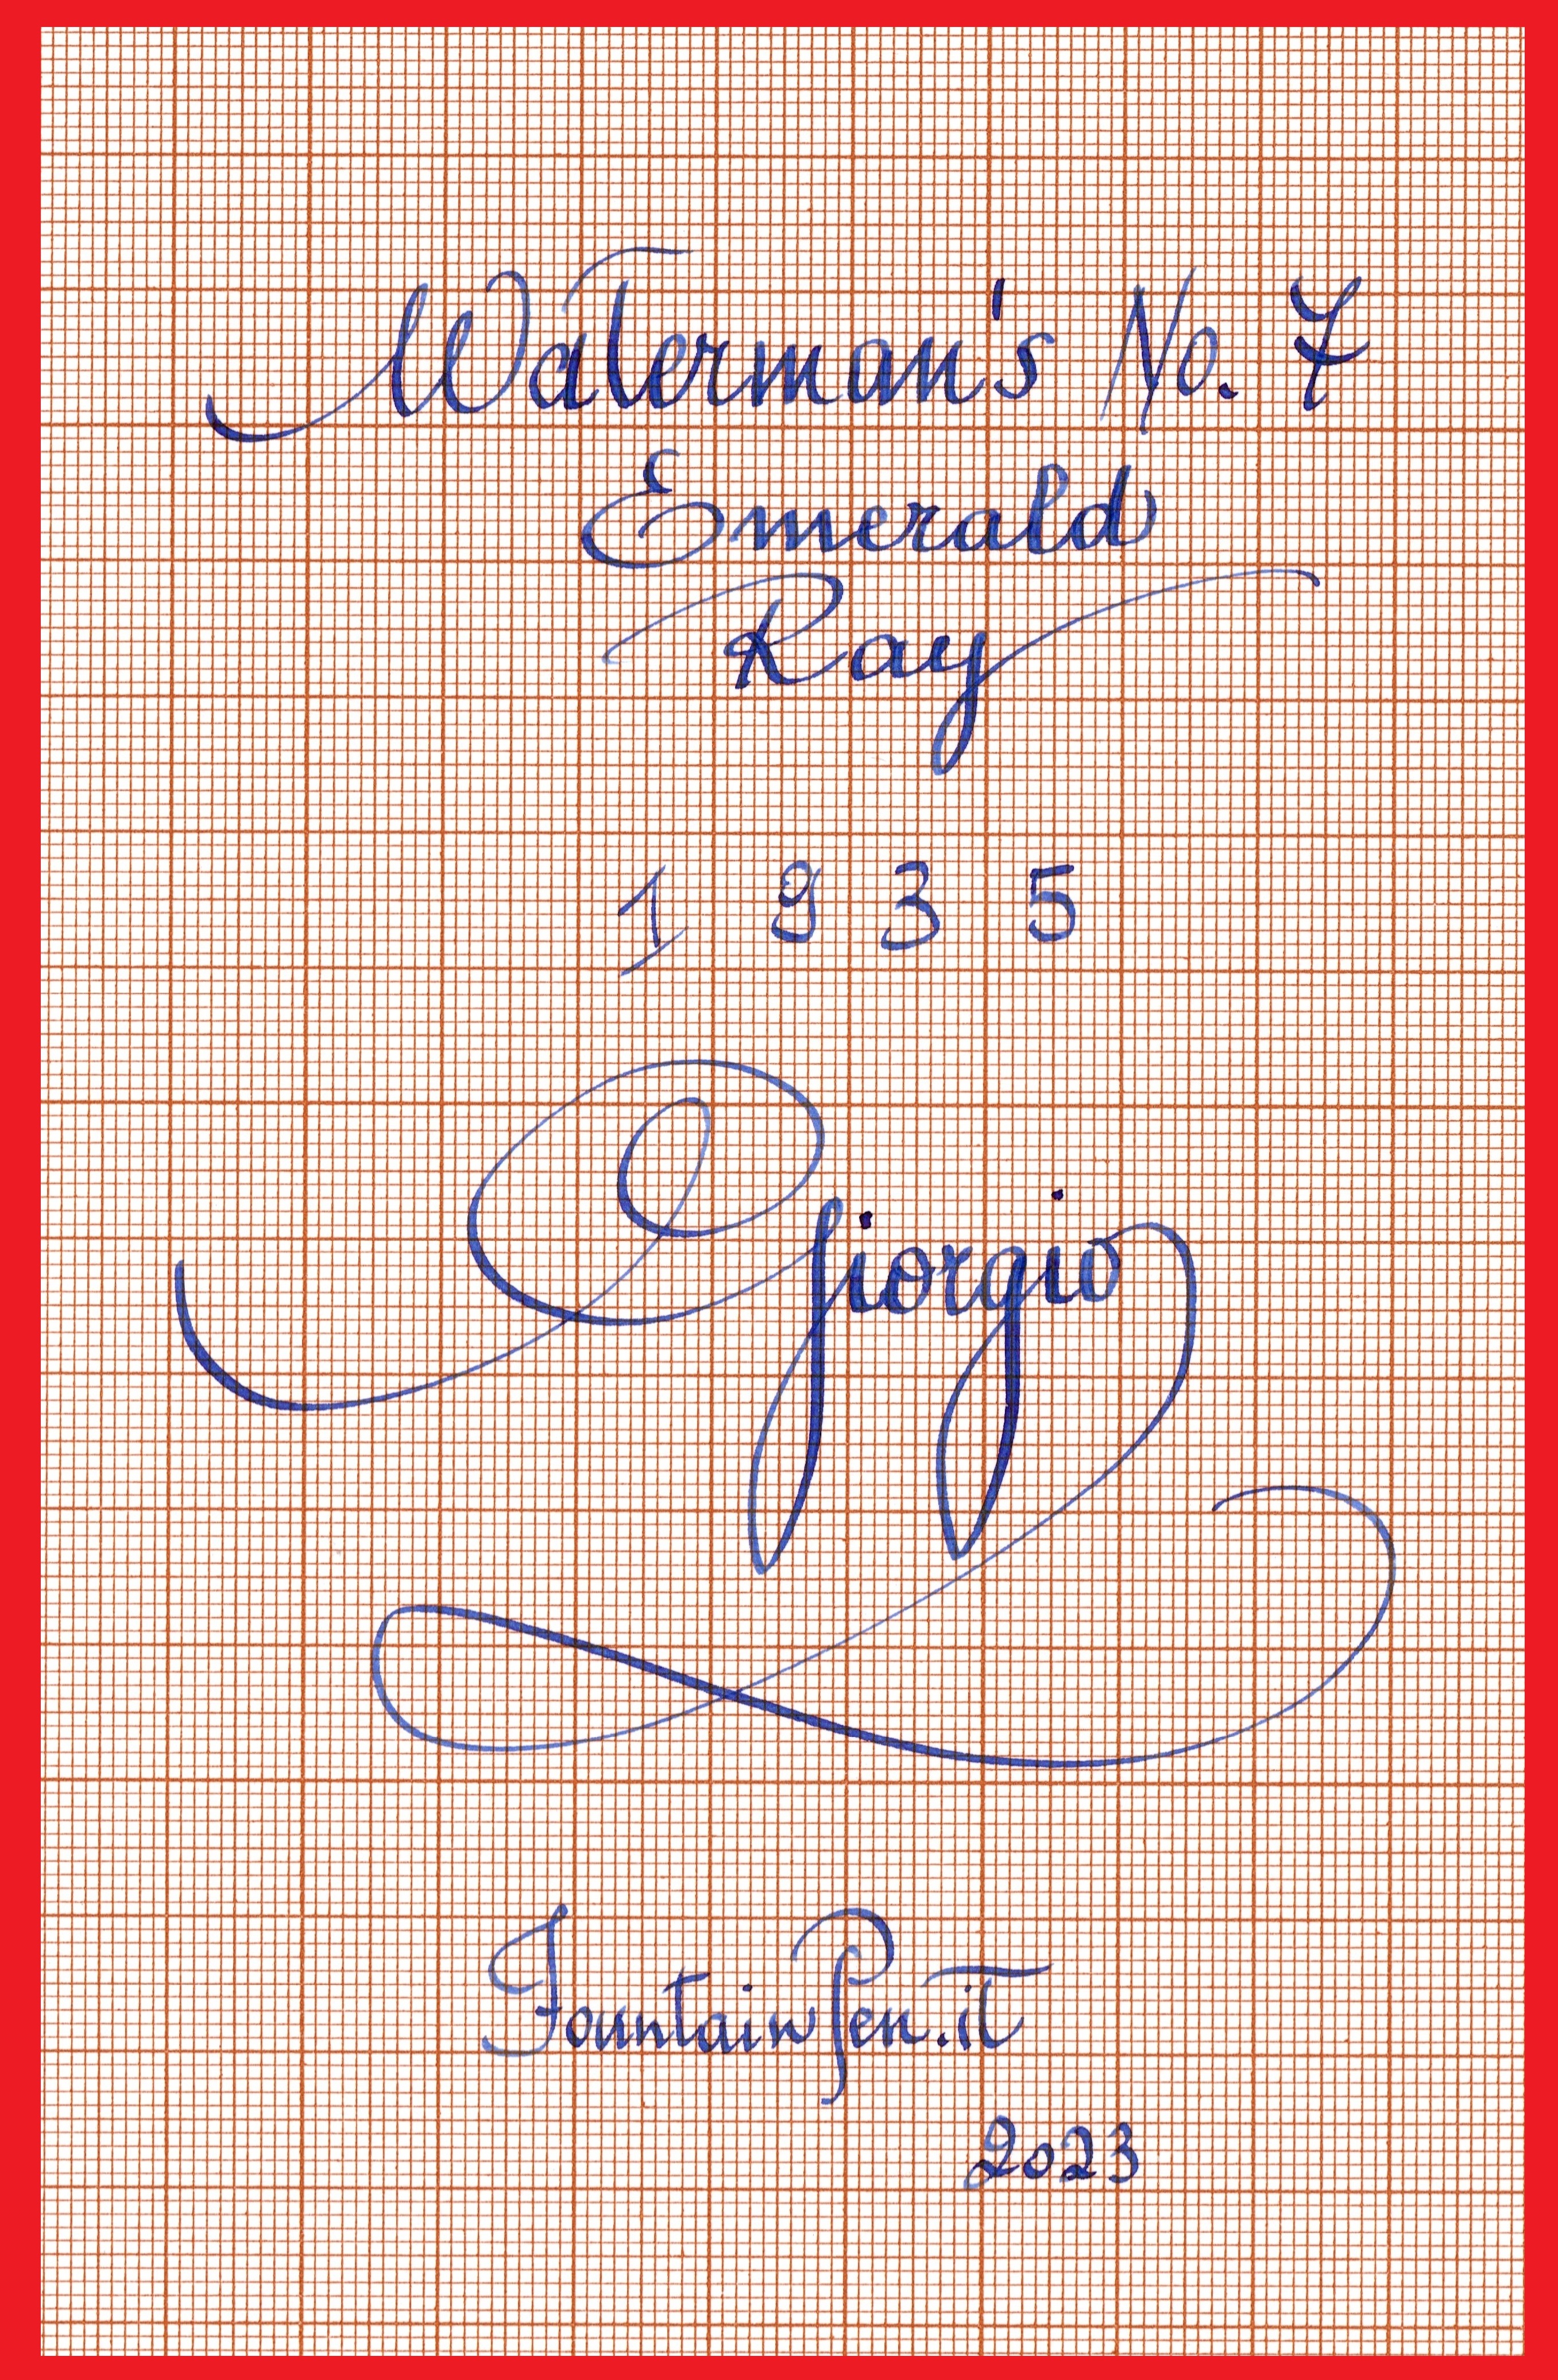 Waterman's No. 7
Emerald
Ray
1935
Giorgio
FountainPen.it
2023